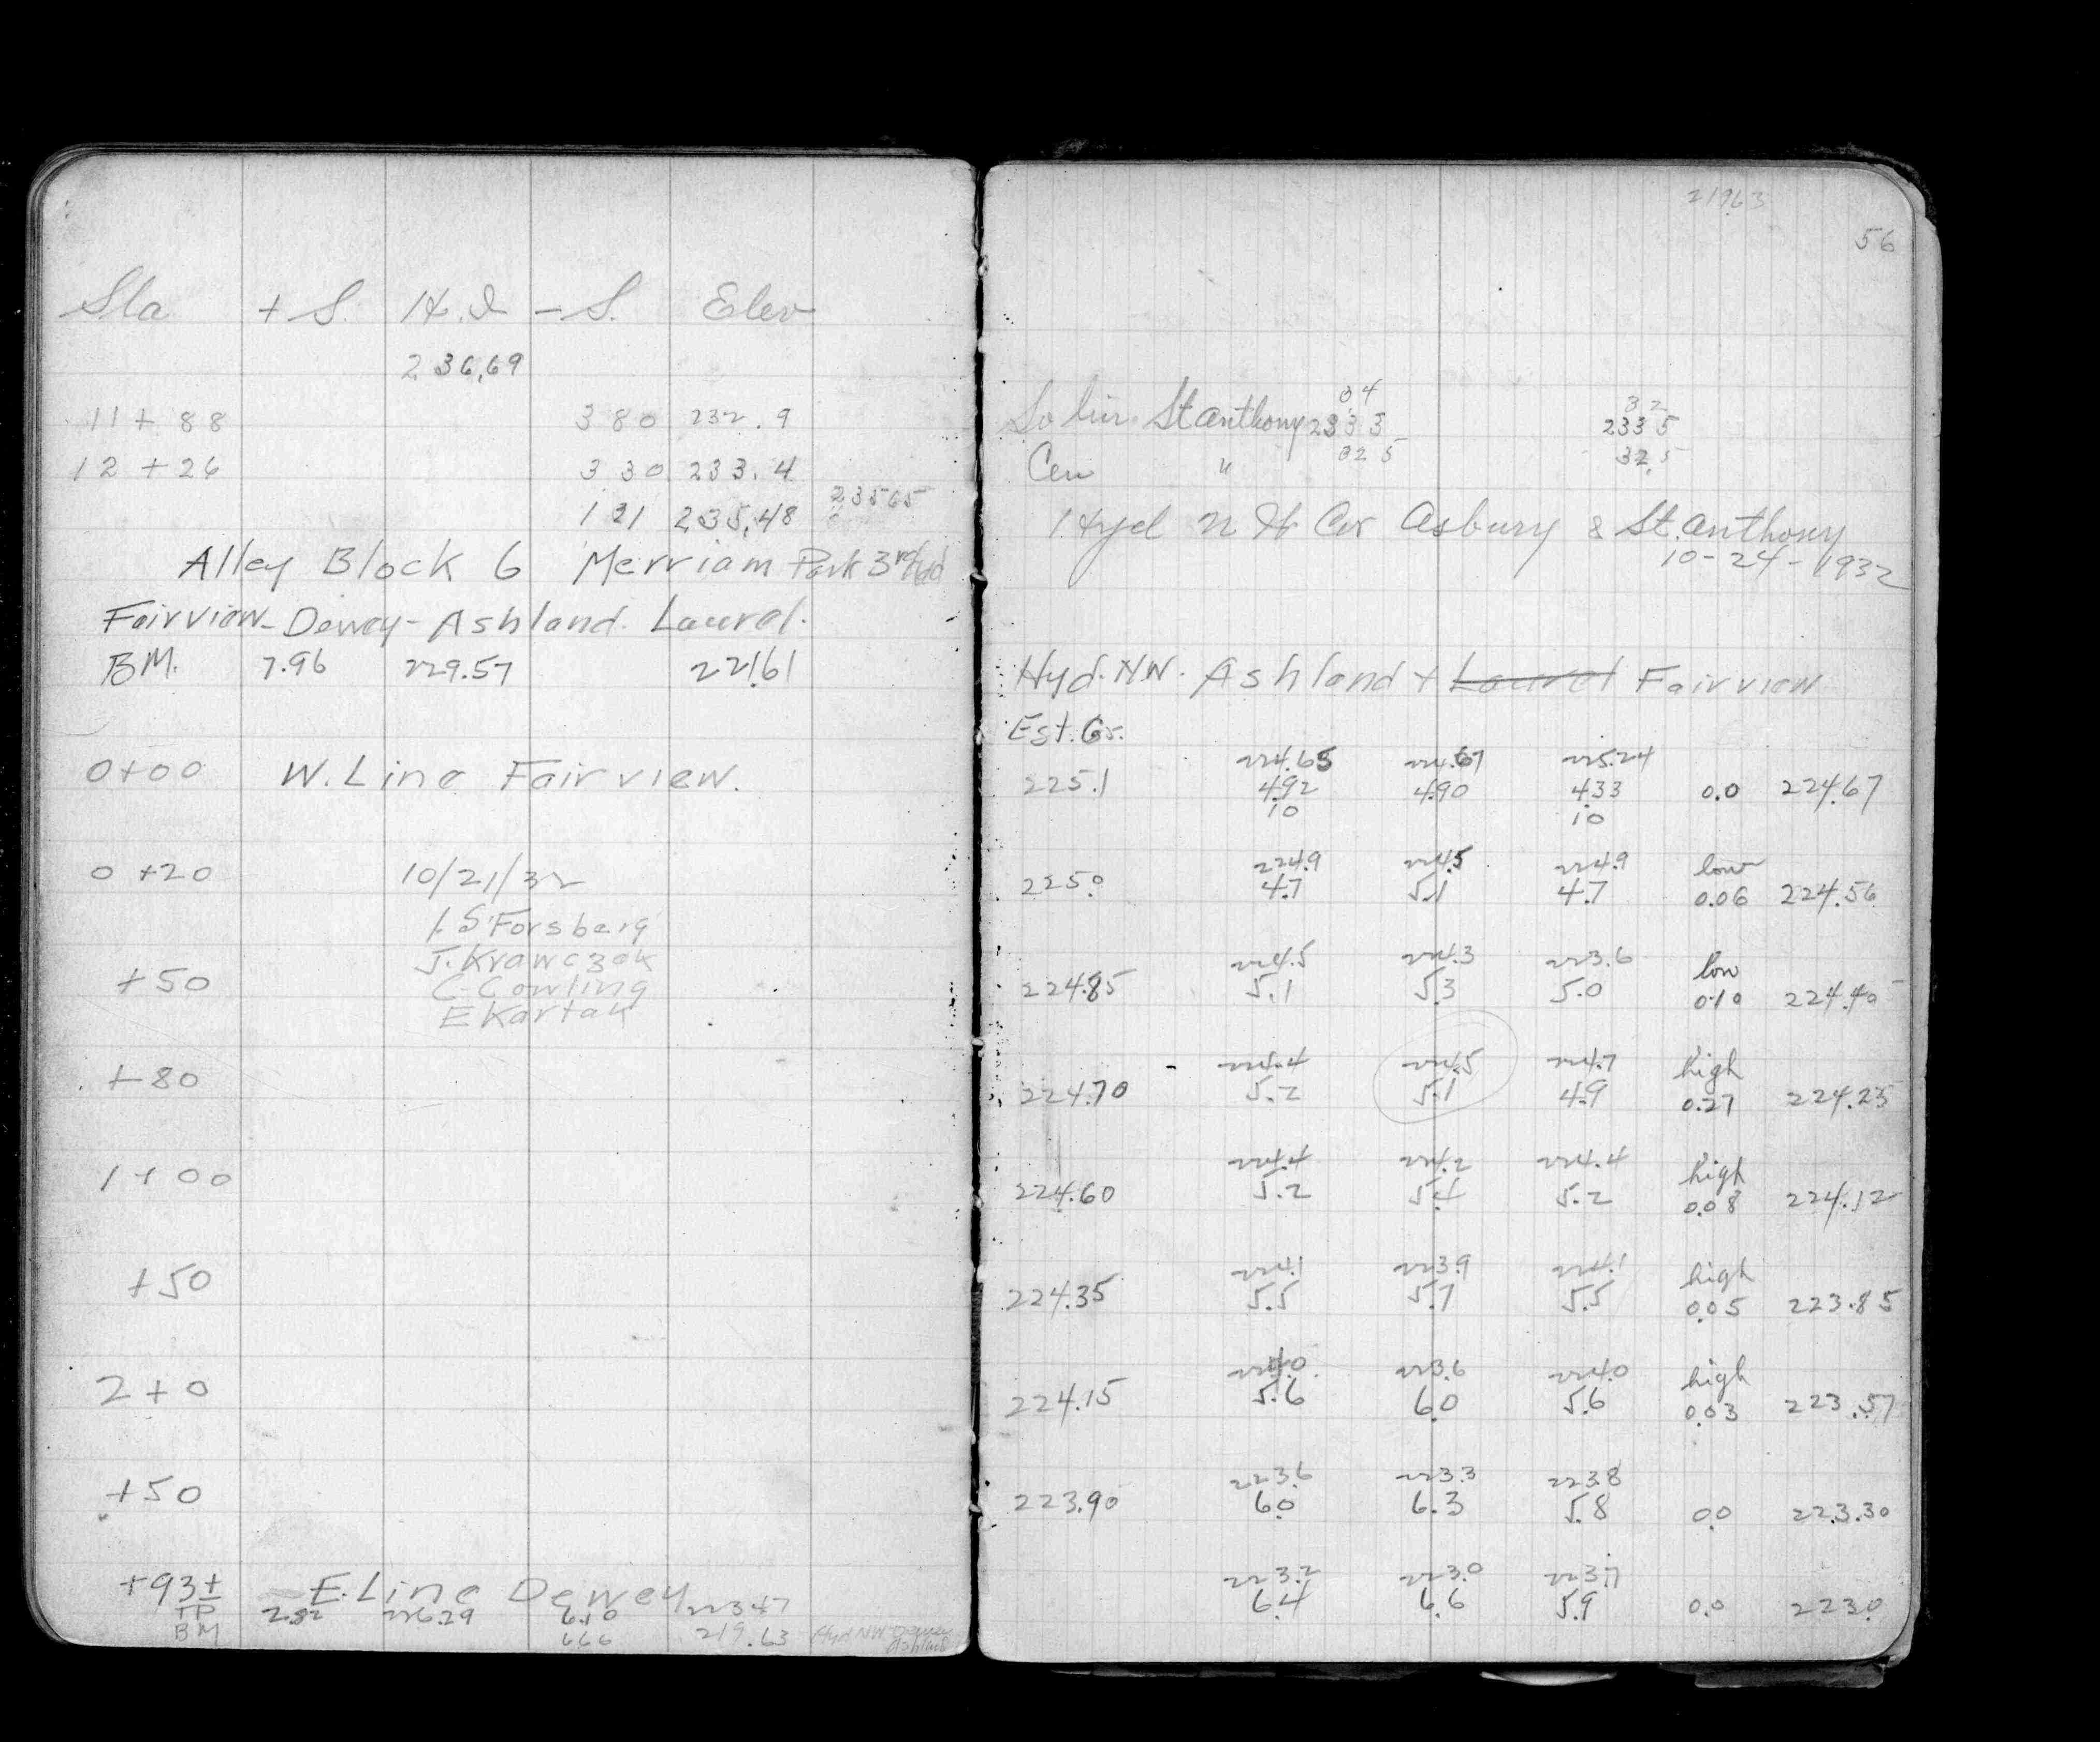 Sta + S. H.I - S. Elev
236.69
11 + 88 3 80 232.9
12 + 26 3 30 233.4
1 21 235.48 23565
Alley Block 6 Merriam Park 3rd Add
Fairview-Dewey-Ashland. Laurel.
BM. 7.96 229.57 221.61
0+00 W. Line Fairview.
0+20 10/21/32
I.S Forsberg
J. Krawczak
+50 C. Cowling
E Kartak
+80
1+00
+50
2+0
+50
+93± E. Line Dewey
TP 2.82 226.29 6.10 223.47
BM 6.66 219.63 Hyd NW Dewey
Ashland
219.63
56
34 32
So line St Anthony 233 3 233 5
32 5 32.5
Cen "
Hyd N W Cor Asbury & St. Anthony
10-24-1932
Hyd. N.W. Ashland + Laurel Fairview
Est. Gr.
224.65 224.67 225.24
225.1 4.92 4.90 4.33 0.0 224.67
10 10
224.9 224.5 224.9 low
225.0 4.7 5.1 4.7 0.06 224.56
224.5 224.3 223.6 low
224.85 5.1 5.3 5.0 0.10 224.40
224.4 224.5 224.7 high
224.70 5.2 5.1 4.9 0.27 224.23
224.4 224.2 224.4 high
224.60 5.2 5.4 5.2 0.08 224.12
224.1 223.9 224.1 high
224.35 5.5 5.7 5.5 0.05 223.85
224.0 223.6 224.0 high
224.15 5.6 6.0 5.6 0.03 223.57
223.6 223.3 223.8
223.90 6.0 6.3 5.8 0.0 223.30
223.2 223.0 223.7
6.4 6.6 5.9 0.0 223.0